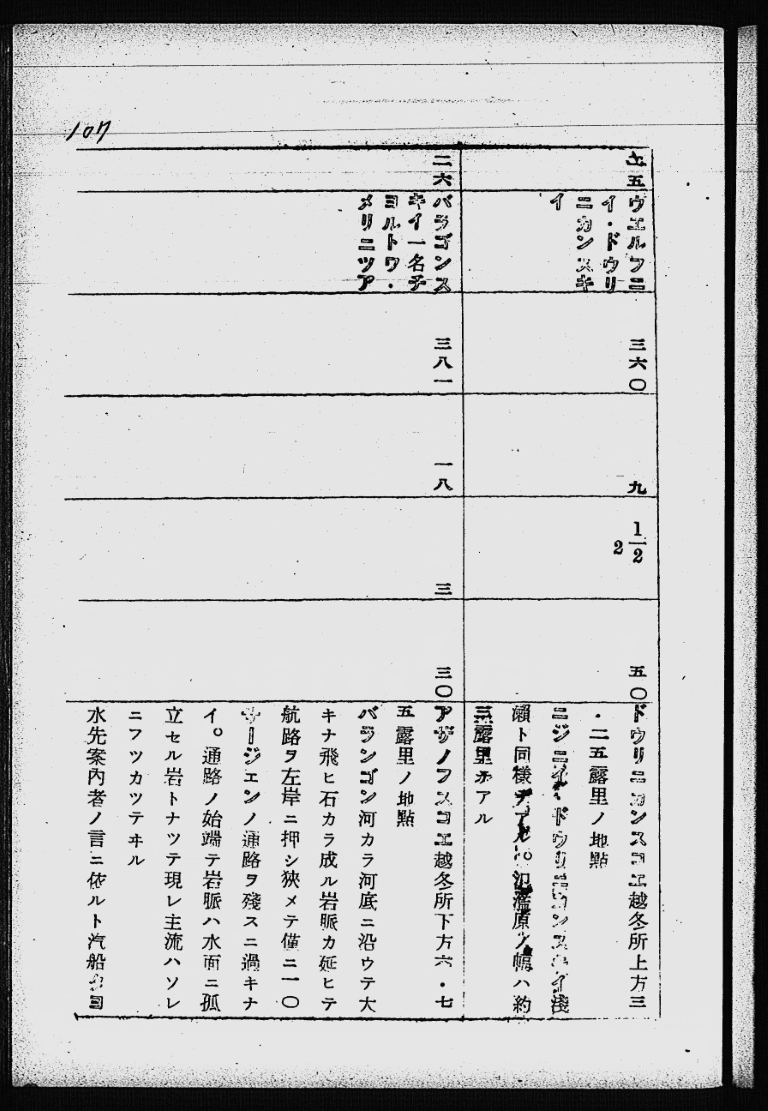 107
二五
ウエルフニ
イ・ドウリ
ニカンスキ
イ
三六〇
九
2 1/2
五〇
ドウリニカンスコエ越冬所上方三
・二五露里ノ地點
ニジニイ・ドウリニカンスキイ淺
瀨ト同樣デアル。氾濫原ノ幅ハ約
三露里デアル
二六
バラゴンス
キイ一名チ
ヨルトワ・
メリニツア
三八一
一八
三
三〇
アザノフスコエ越冬所下方六・七
五露里ノ地點
バランゴン河カラ河底ニ沿ウテ大
キナ飛ヒ石カラ成ル岩脈カ延ヒテ
航路ヲ左岸ニ押シ狹メテ僅ニ一〇
サージエンノ通路ヲ殘スニ過キナ
イ。通路ノ始端テ岩脈ハ水面ニ孤
立セル岩トナツテ現レ主流ハソレ
ニフツカツテヰル
水先案內者ノ言ニ依ルト汽船カヨ